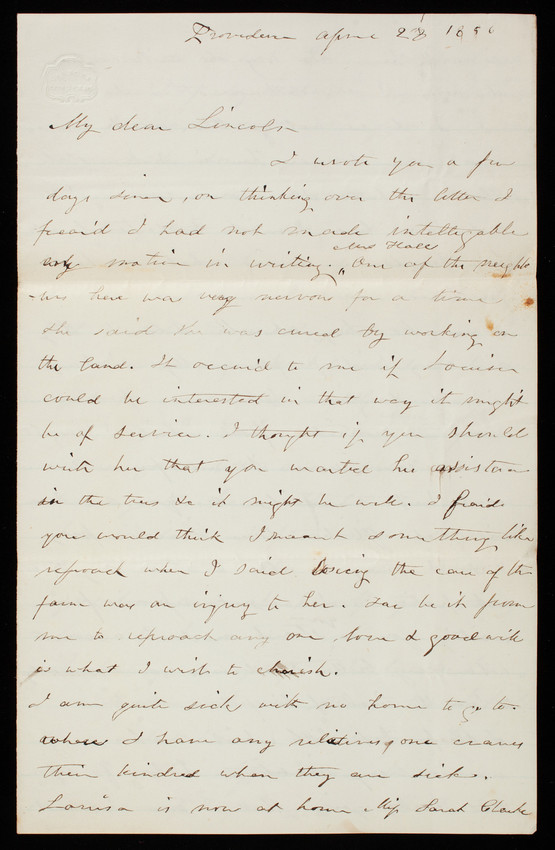 Providence April 28 1890
My dear Lincoln
I wrote you a few
days since, on thinking over the letter I
feard I had not made intelligable
my motive in writing. Mrs Hall One of the neighb
ors here was very nervous for a time
she said she was cured by working on
the land. It occurd to me if Louisa
could be interested in that way it might
be of service. I thought if you should
write her that you wanted her assistance
in the trees &c it might be well. I fraid
you would think I meant something like
reproach when I said loseing the care of the
farm was an injury to her. Far be it from
me to reproach any one love & good will
is what I wish to cherish.
I am quite sick with no home to go to
where I have any relatives one craves
their kindred when they are sick.
Louisa is now at home Miss Sarah Clarke